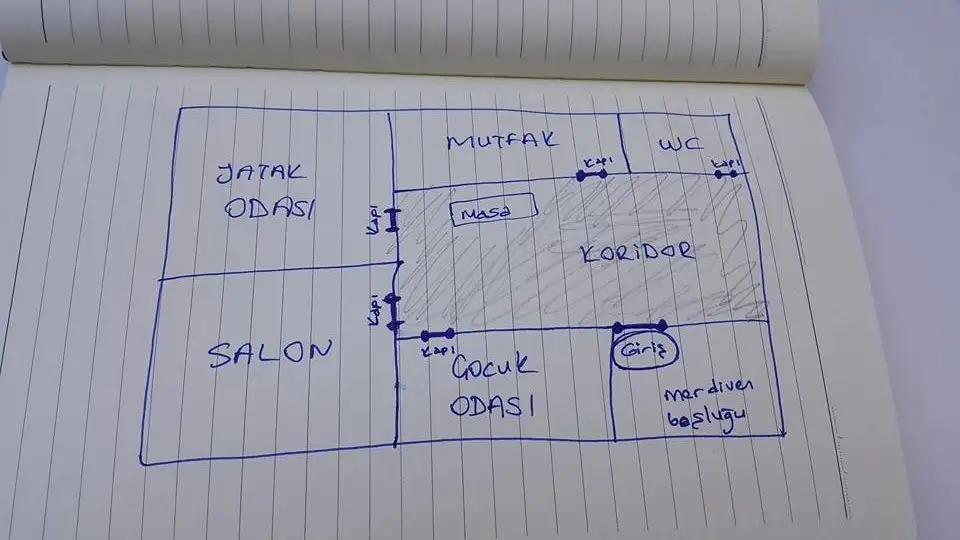 MUTFAK
WC
Kapı
Kapı
YATAK
ODASI
Kapı
Masa
KORİDOR
Kapı
SALON
Kapı
ÇOCUK
ODASI
Giriş
merdiven
boşluğu